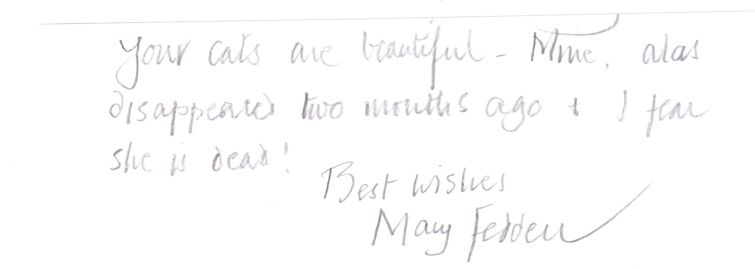 Your cats are beautiful - Mine, alas
disappeared two months ago & I fear
she is dead!
Best wishes
Mary Fedden